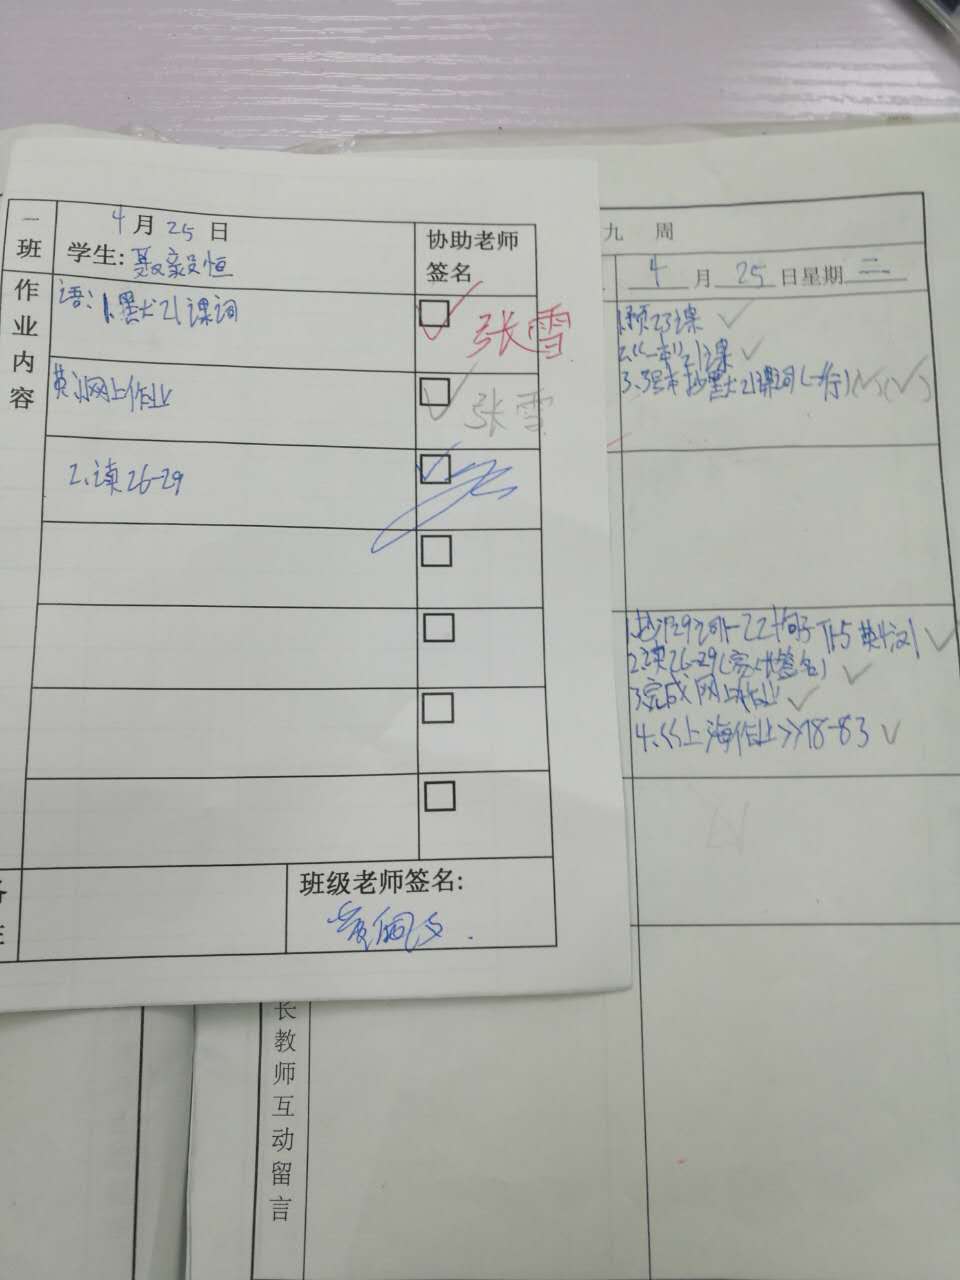 一班
4月25日
学生: 聂毅恒
协助老师
签名
作业内容
语: 1.默21课词
张雪
英:1.网上作业
张雪
2.读26-29
班级老师签名:
九 周
4月25日星期二
1.预23课
2.《一本》21课
3.3号本抄默21课词(一行)
2.读26-29(家长签名)
3.完成网上作业
4.《上海作业》78-83
长教师互动留言